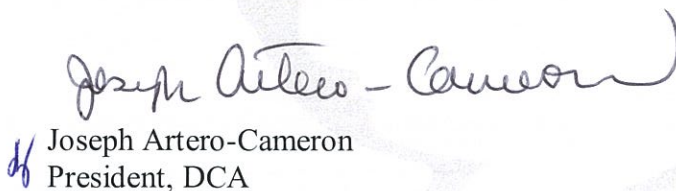 Joseph Artero-Cameron
Joseph Artero-Cameron
President, DCA